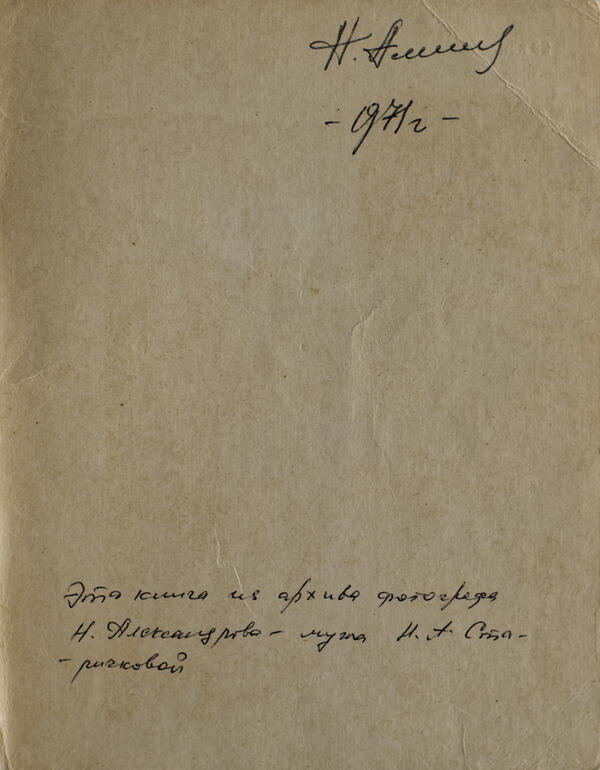 Н.
- 1971г -
Эта книга из архива фотографа
Н. Александрова - мужа Н. А. Ста-
- ричковой